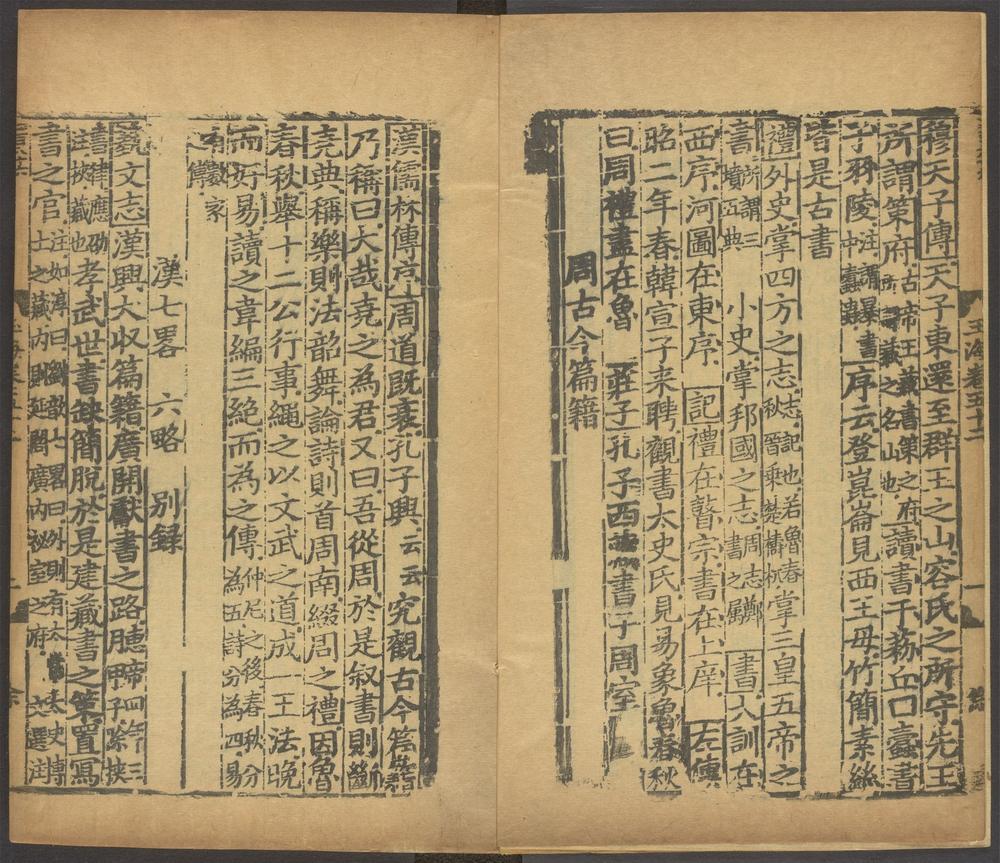 穆天子傳天子東還至群玉之山容氏之所守先王
所謂策府古帝王藏書策之府所謂藏之名山也讀書于菞丘口蠹書
于羽陵注謂暴書中蠹蟲序云登崑崙見西王母竹簡素絲
皆是古書
禮外史掌四方之志志記也若魯春秋晉乘楚檮杌掌三皇五帝之
書所謂三墳五典 小史掌邦國之志周志鄭書之屬 書八訓在
西序河圖在東序 記禮在瞽宗書在上庠 左傳
昭二年春韓宣子来聘觀書太史氏見易象魯春秋
曰周禮盡在魯 莊子孔子西藏書于周室
周古今篇籍
漢儒林傳序周道既衰孔子興云云究觀古今篇籍
乃稱曰大哉堯之為君又曰吾從周於是叙書則斷
堯典稱樂則法韶舞論詩則首周南綴周之禮因魯
春秋舉十二公行事繩之以文武之道成一王法晚
而好易讀之韋編三絕而為之傳仲尼之後春秋分為五詩分為四易
有數家之傳
漢七畧 六略 别録
藝文志漢興大收篇籍廣開獻書之路惠帝四年除挾
書律應劭注挾藏也孝武世書缺簡脫於是建藏書之策置寫
書之官注如淳曰劉歆七畧曰外則有太常太史博士之藏内則延閣廣内秘室之府 文選注
玉海卷五十二